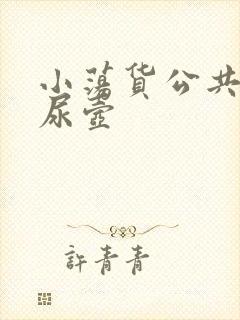 小蕩货公共
尿壺
許青青